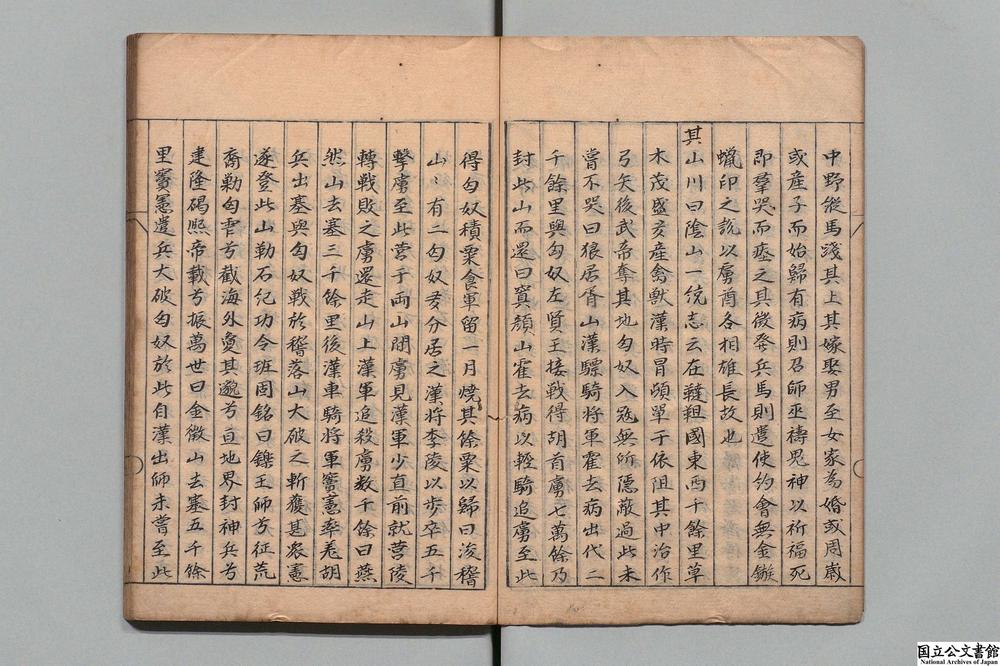 中野縱馬踐其上其嫁娶男至女家為婚或周嵗
或產子而始歸有病則召師巫禱鬼神以祈福死
即羣哭而瘞之其徵發兵馬則遣使約會無金鏃
蠟印之說以虜酋各相雄長故也
其山川曰陰山一統志云在韃靼國東西千餘里草
木茂盛多產禽獸漢時冒頓單于依阻其中治作
弓矢後武帝奪其地匈奴入寇無所隠蔽過此未
嘗不哭曰狼居胥山漢驃騎將軍霍去病出代二
千餘里與匈奴左賢王接戰得胡首虜七萬餘乃
封此山而還曰窴顏山霍去病以輕騎追虜至此
得匈奴積粟食軍留一月燒其餘粟以歸曰浚稽
山山有二匈奴爰分居之漢將李陵以步卒五千
擊虜至此營于兩山間虜見漢軍少直前就營陵
轉戰敗之虜還走山上漢軍追殺虜数千餘曰燕
然山去塞三千餘里後漢車騎將軍竇憲率羗胡
兵出塞與匈奴戰於稽落山大破之斬獲甚衆憲
遂登此山勒石紀功令班固銘曰鑠王師兮征荒
裔勦匈雩兮截海外夐其邈兮亘地界封神兵兮
建隆碣熈帝載兮振萬世曰金微山去塞五千餘
里竇憲遣兵大破匈奴於此自漢出師未嘗至此
国立公文書館
National Archives of Japan